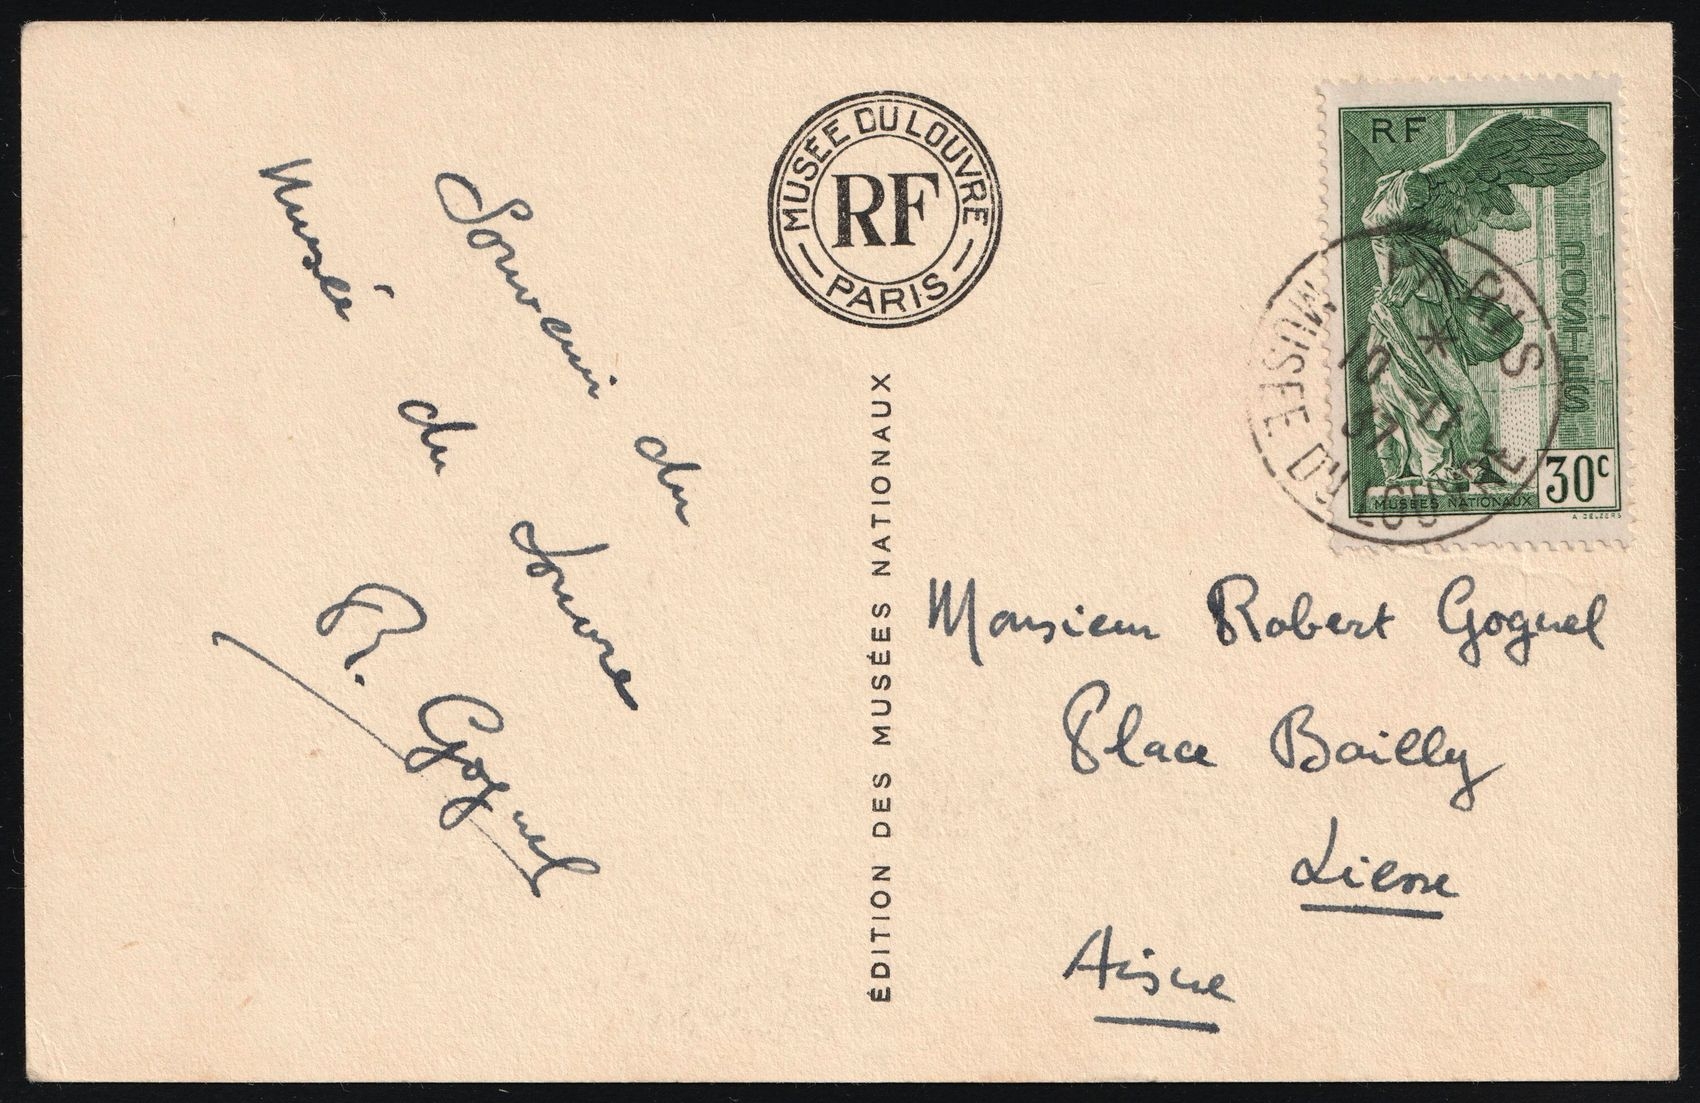 Souvenir du
Musée du Louvre
R. Goguel
MUSÉE DU LOUVRE
RF
PARIS
ÉDITION DES MUSÉES NATIONAUX
RF
POSTES
30c
MUSEES NATIONAUX
A. DELZERS
PARIS
*
10 - 11
37
MUSEE DU LOUVRE
Monsieur Robert Goguel
Place Bailly
Liesse
Aisne